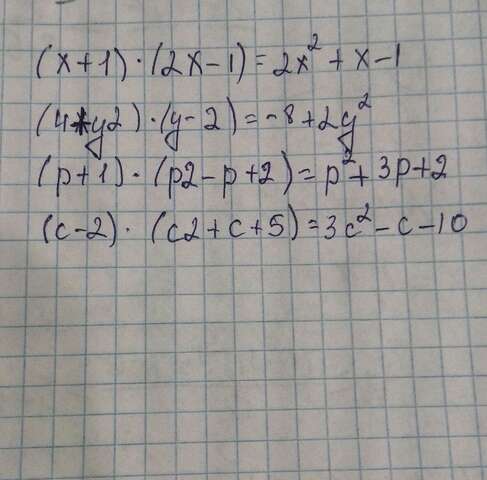 (x+1)·(2x-1)=2x²+x-1
(4+y2)·(y-2)=-8+2y²
(p+1)·(p2-p+2)=p²+3p+2
(c-2)·(c2+c+5)=3c²-c-10